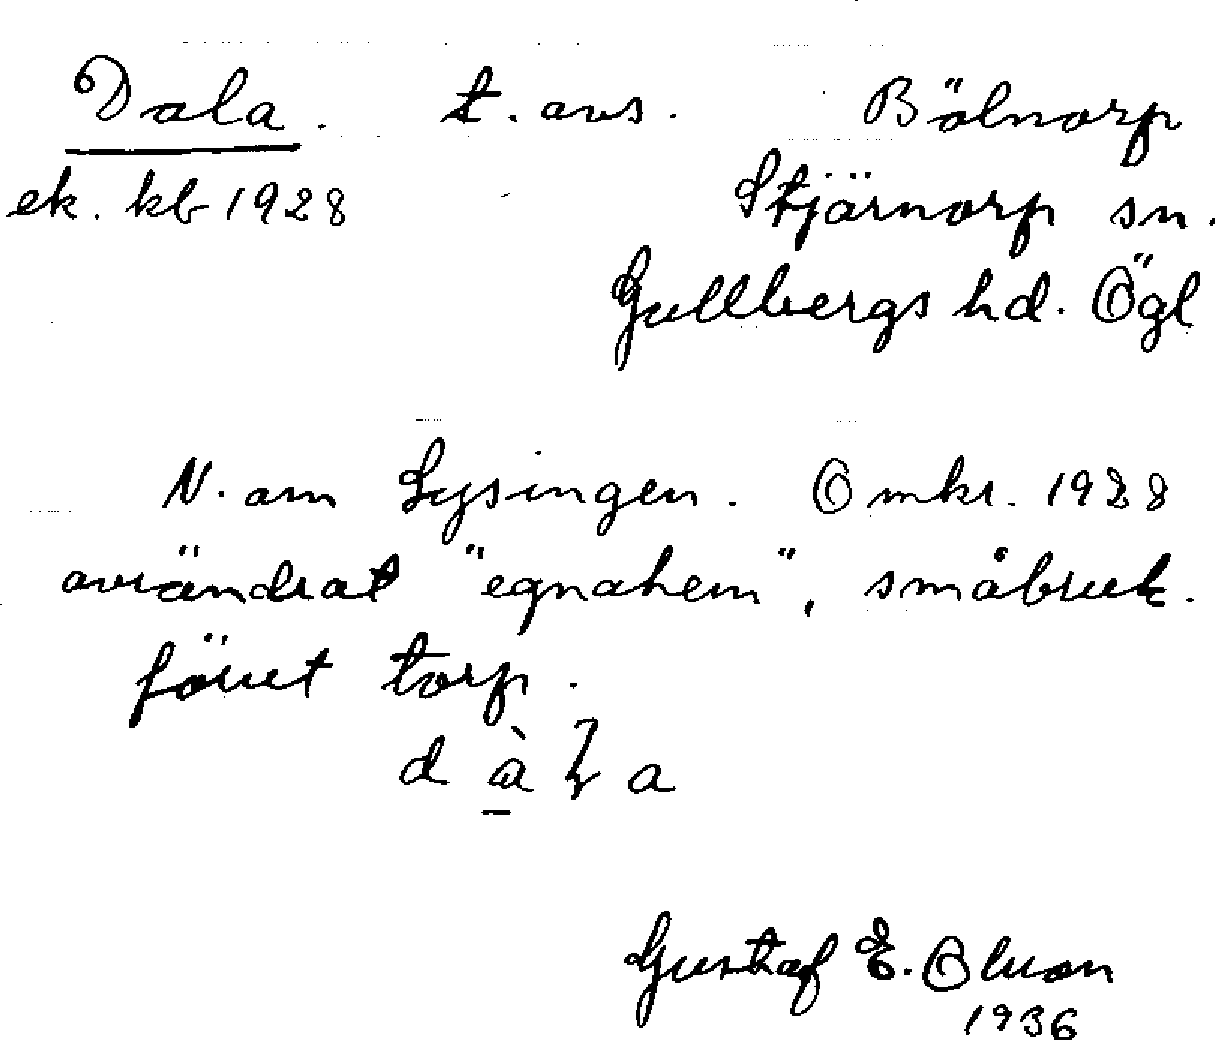 Dala. t. avs. Bölnorp
ek. kb 1928 Stjärnorp sn.
Gullbergs hd. Ögl
N. om Lysingen. Omkr. 1928
avsöndrat "egnahem", småbruk.
förut torp.
d a
Gustaf E. Olsson
1936